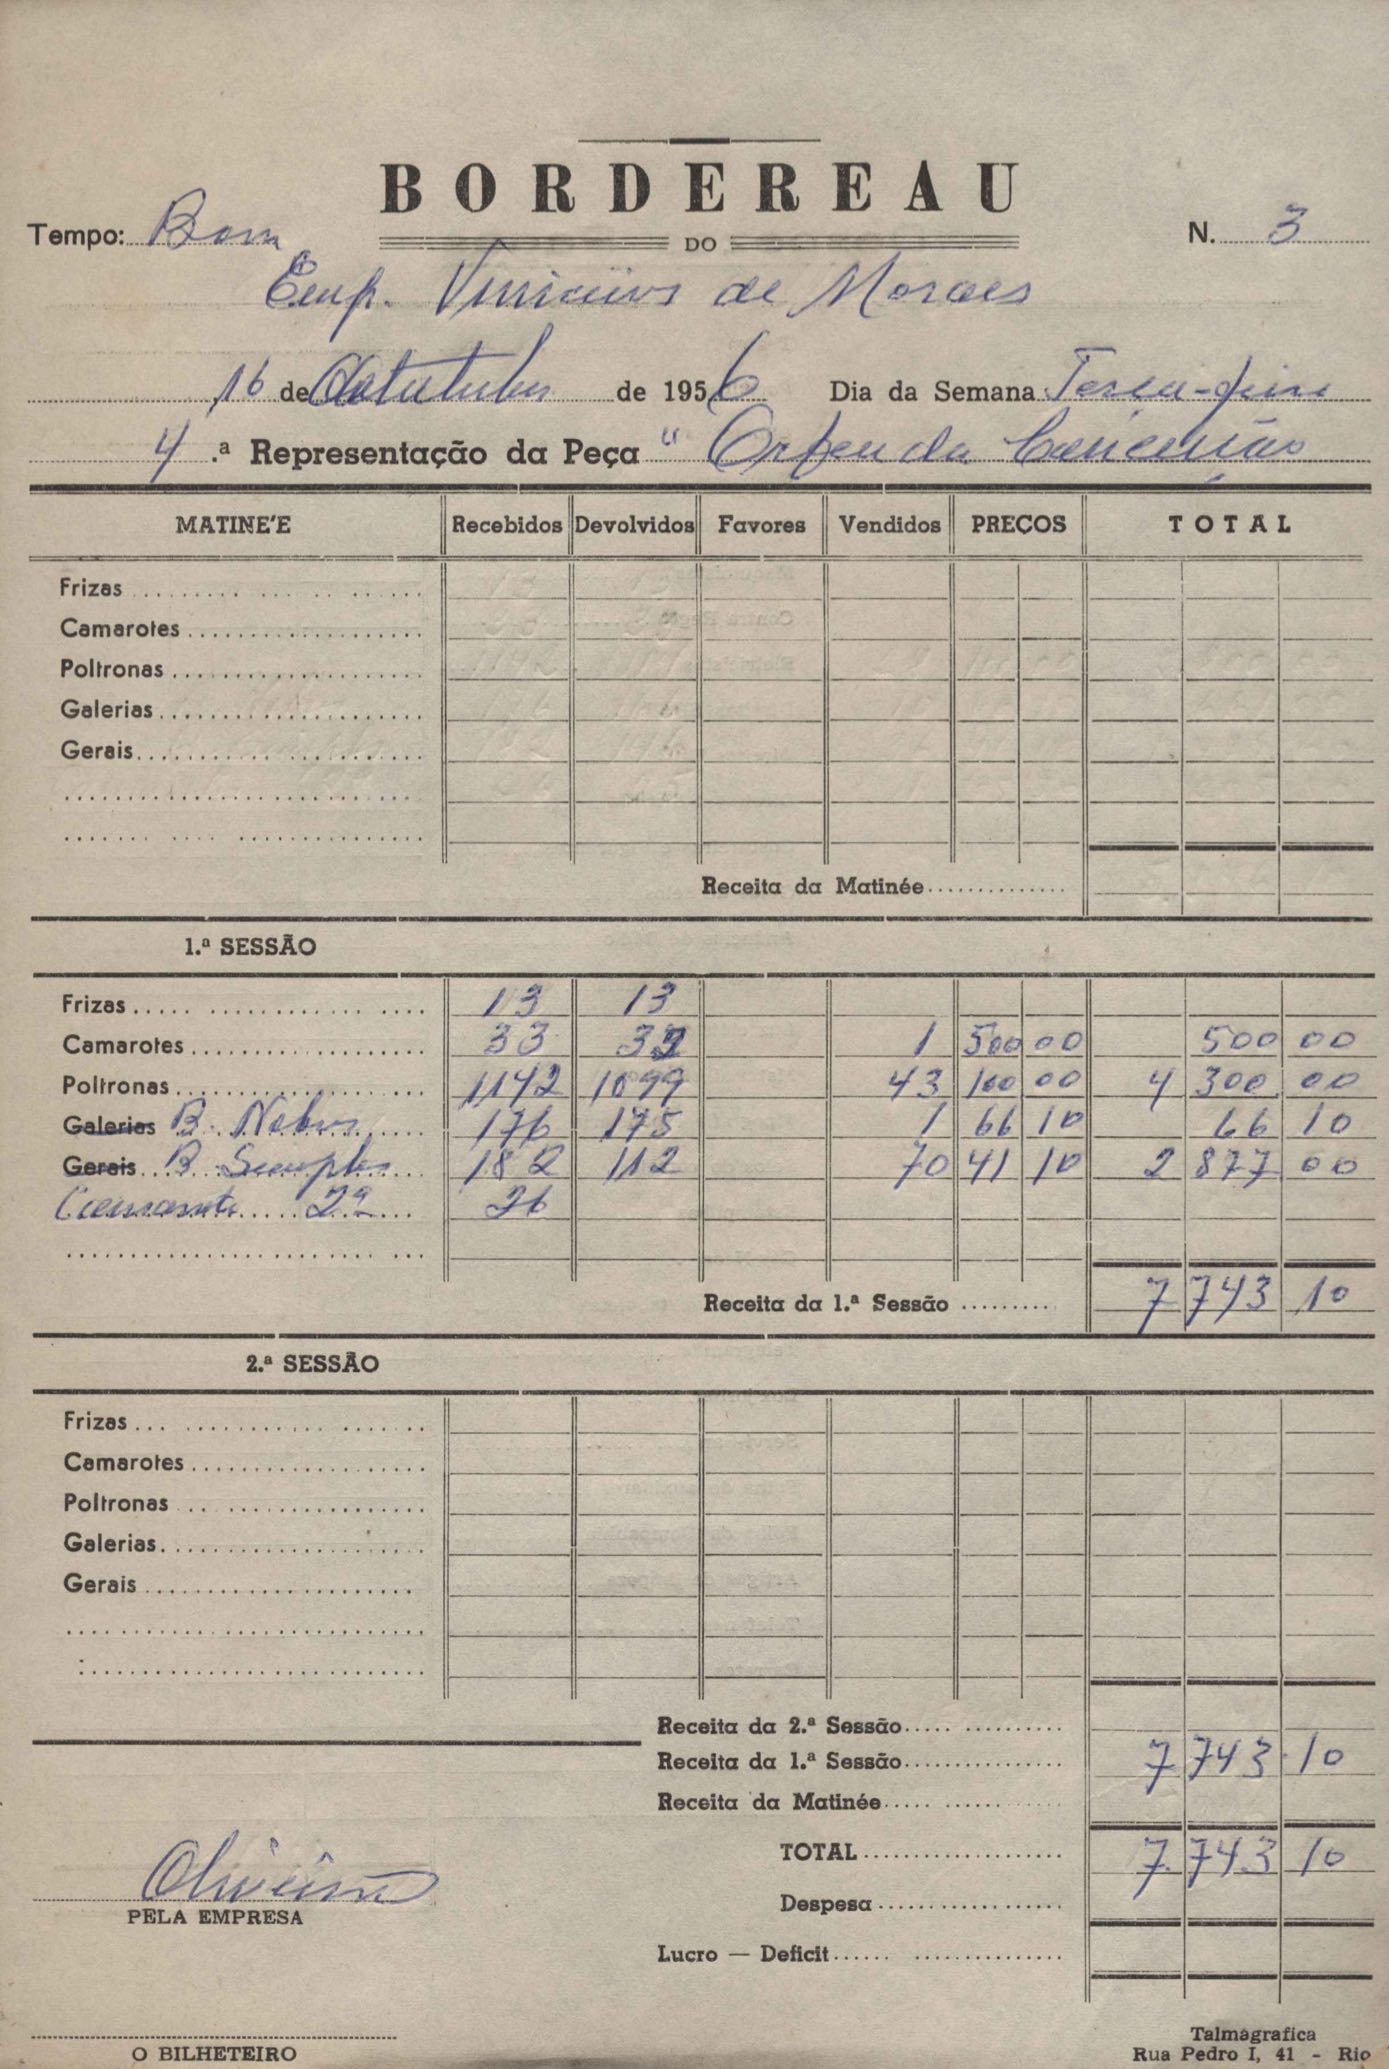 BORDEREAU
Tempo: Bom DO N. 3
Emp. Vinicius de Moraes
16 de Outubro de 1956 Dia da Semana Terça-feira
4.ª Representação da Peça "Orfeu da Conceição
MATINE'E Recebidos Devolvidos Favores Vendidos PREÇOS TOTAL
Frizas
Camarotes
Poltronas
Galerias
Gerais
Receita da Matinée
1.ª SESSÃO
Frizas 13 13
Camarotes 33 32 1 500 00 500 00
Poltronas 1142 1099 43 100 00 4 300 00
Galerias B. Nobres 176 175 1 66 10 66 10
Gerais B. Simples 182 112 70 41 10 2 877 00
Camarote 2ª 26
Receita da 1.ª Sessão 7 743 10
2.ª SESSÃO
Frizas
Camarotes
Poltronas
Galerias
Gerais
Receita da 2.ª Sessão
Receita da 1.ª Sessão 7 743 10
Receita da Matinée
TOTAL 7 743 10
Oliveira
PELA EMPRESA
Despesa
Lucro — Deficit
O BILHETEIRO
Talmagrafica
Rua Pedro I, 41 - Rio